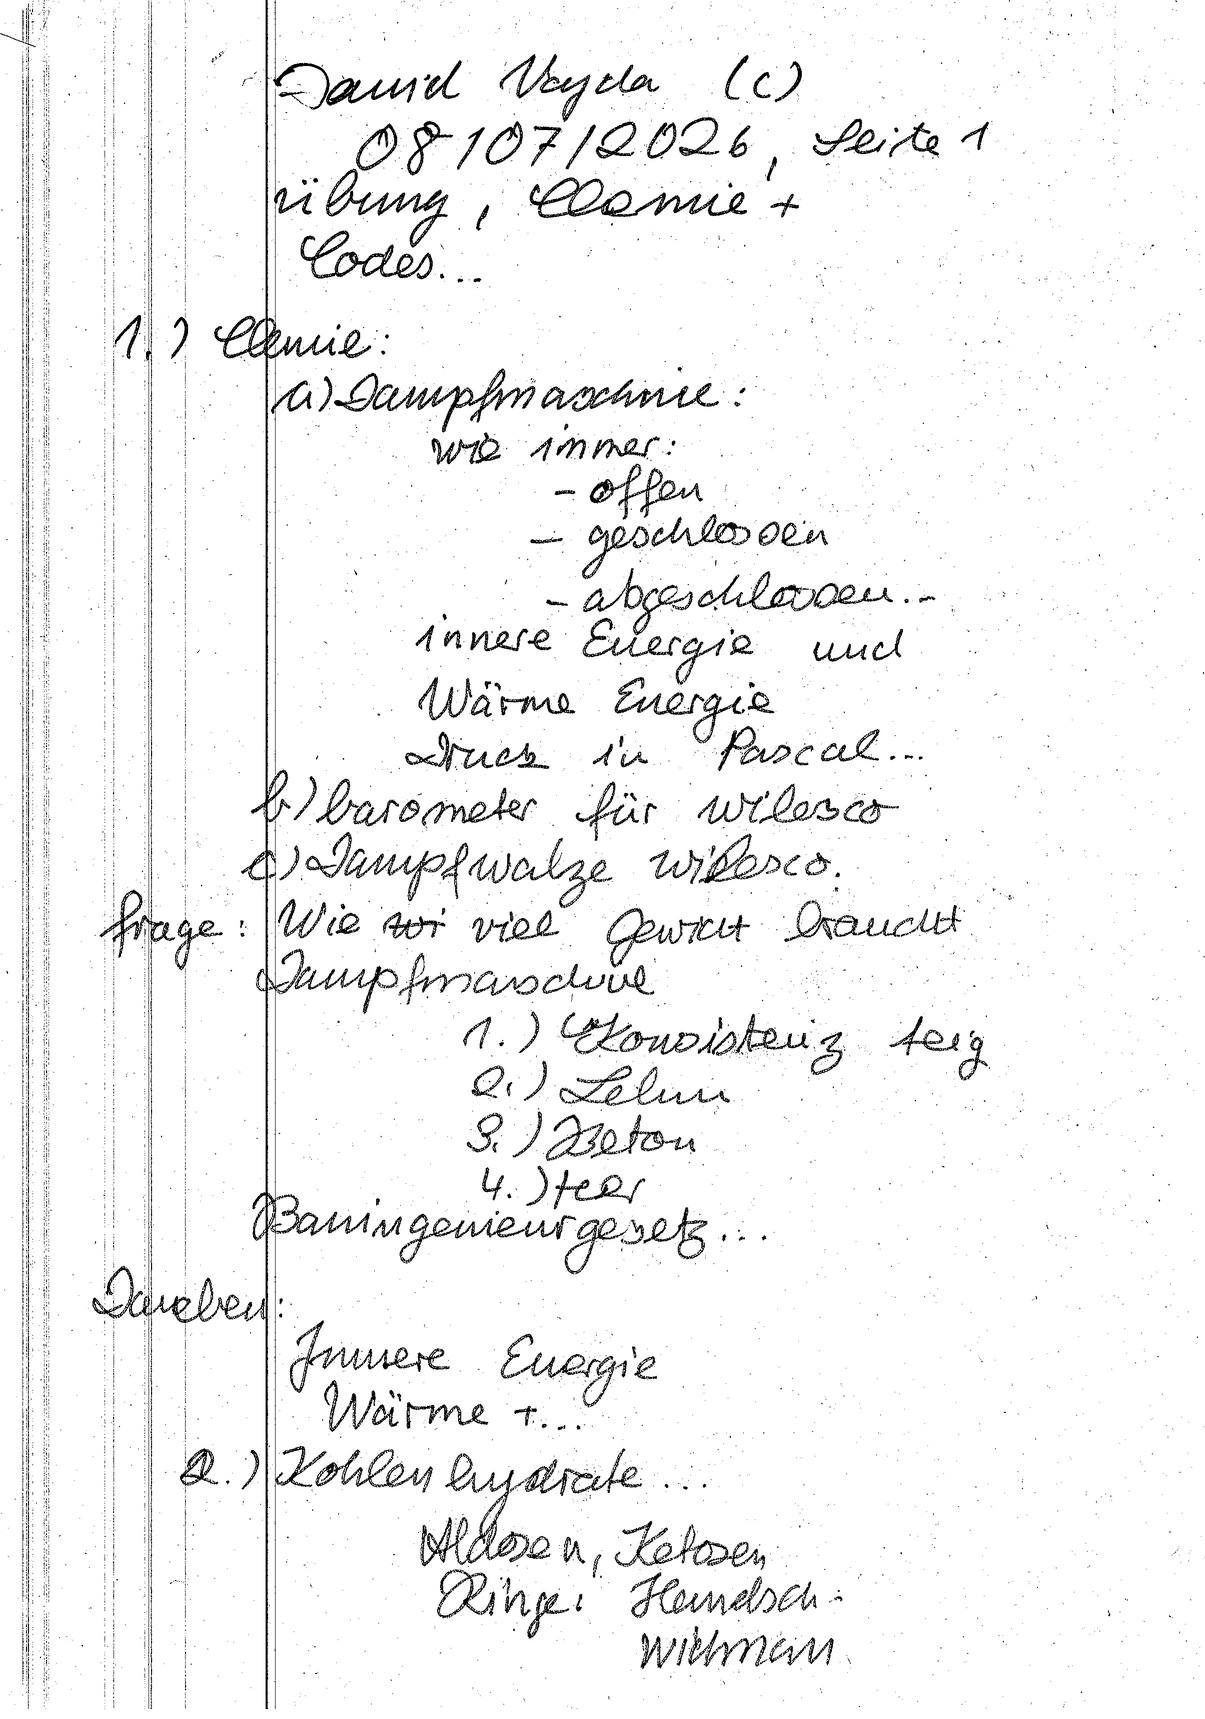 David Vajda (C)
08/07/2026, Seite 1
übung, Chemie +
Codes...
1.) Chemie:
a) Dampfmaschnie:
wie immer:
- offen
- geschlossen
- abgeschlossen..-
innere Energie und
Wärme Energie
Druck in Pascal...
b) barometer für wilesco
c) Dampfwalze wilesco.
frage: Wie wi viel Gewicht braucht
Dampfmaschine
1.) Konsistenz teig
2.) Lehm
3.) Beton
4.) teer
Bauingenieurgesetz...
Daneben:
Innere Energie
Wärme +...
2.) Kohlenhydrate...
Aldosen, Ketosen
Ringe: